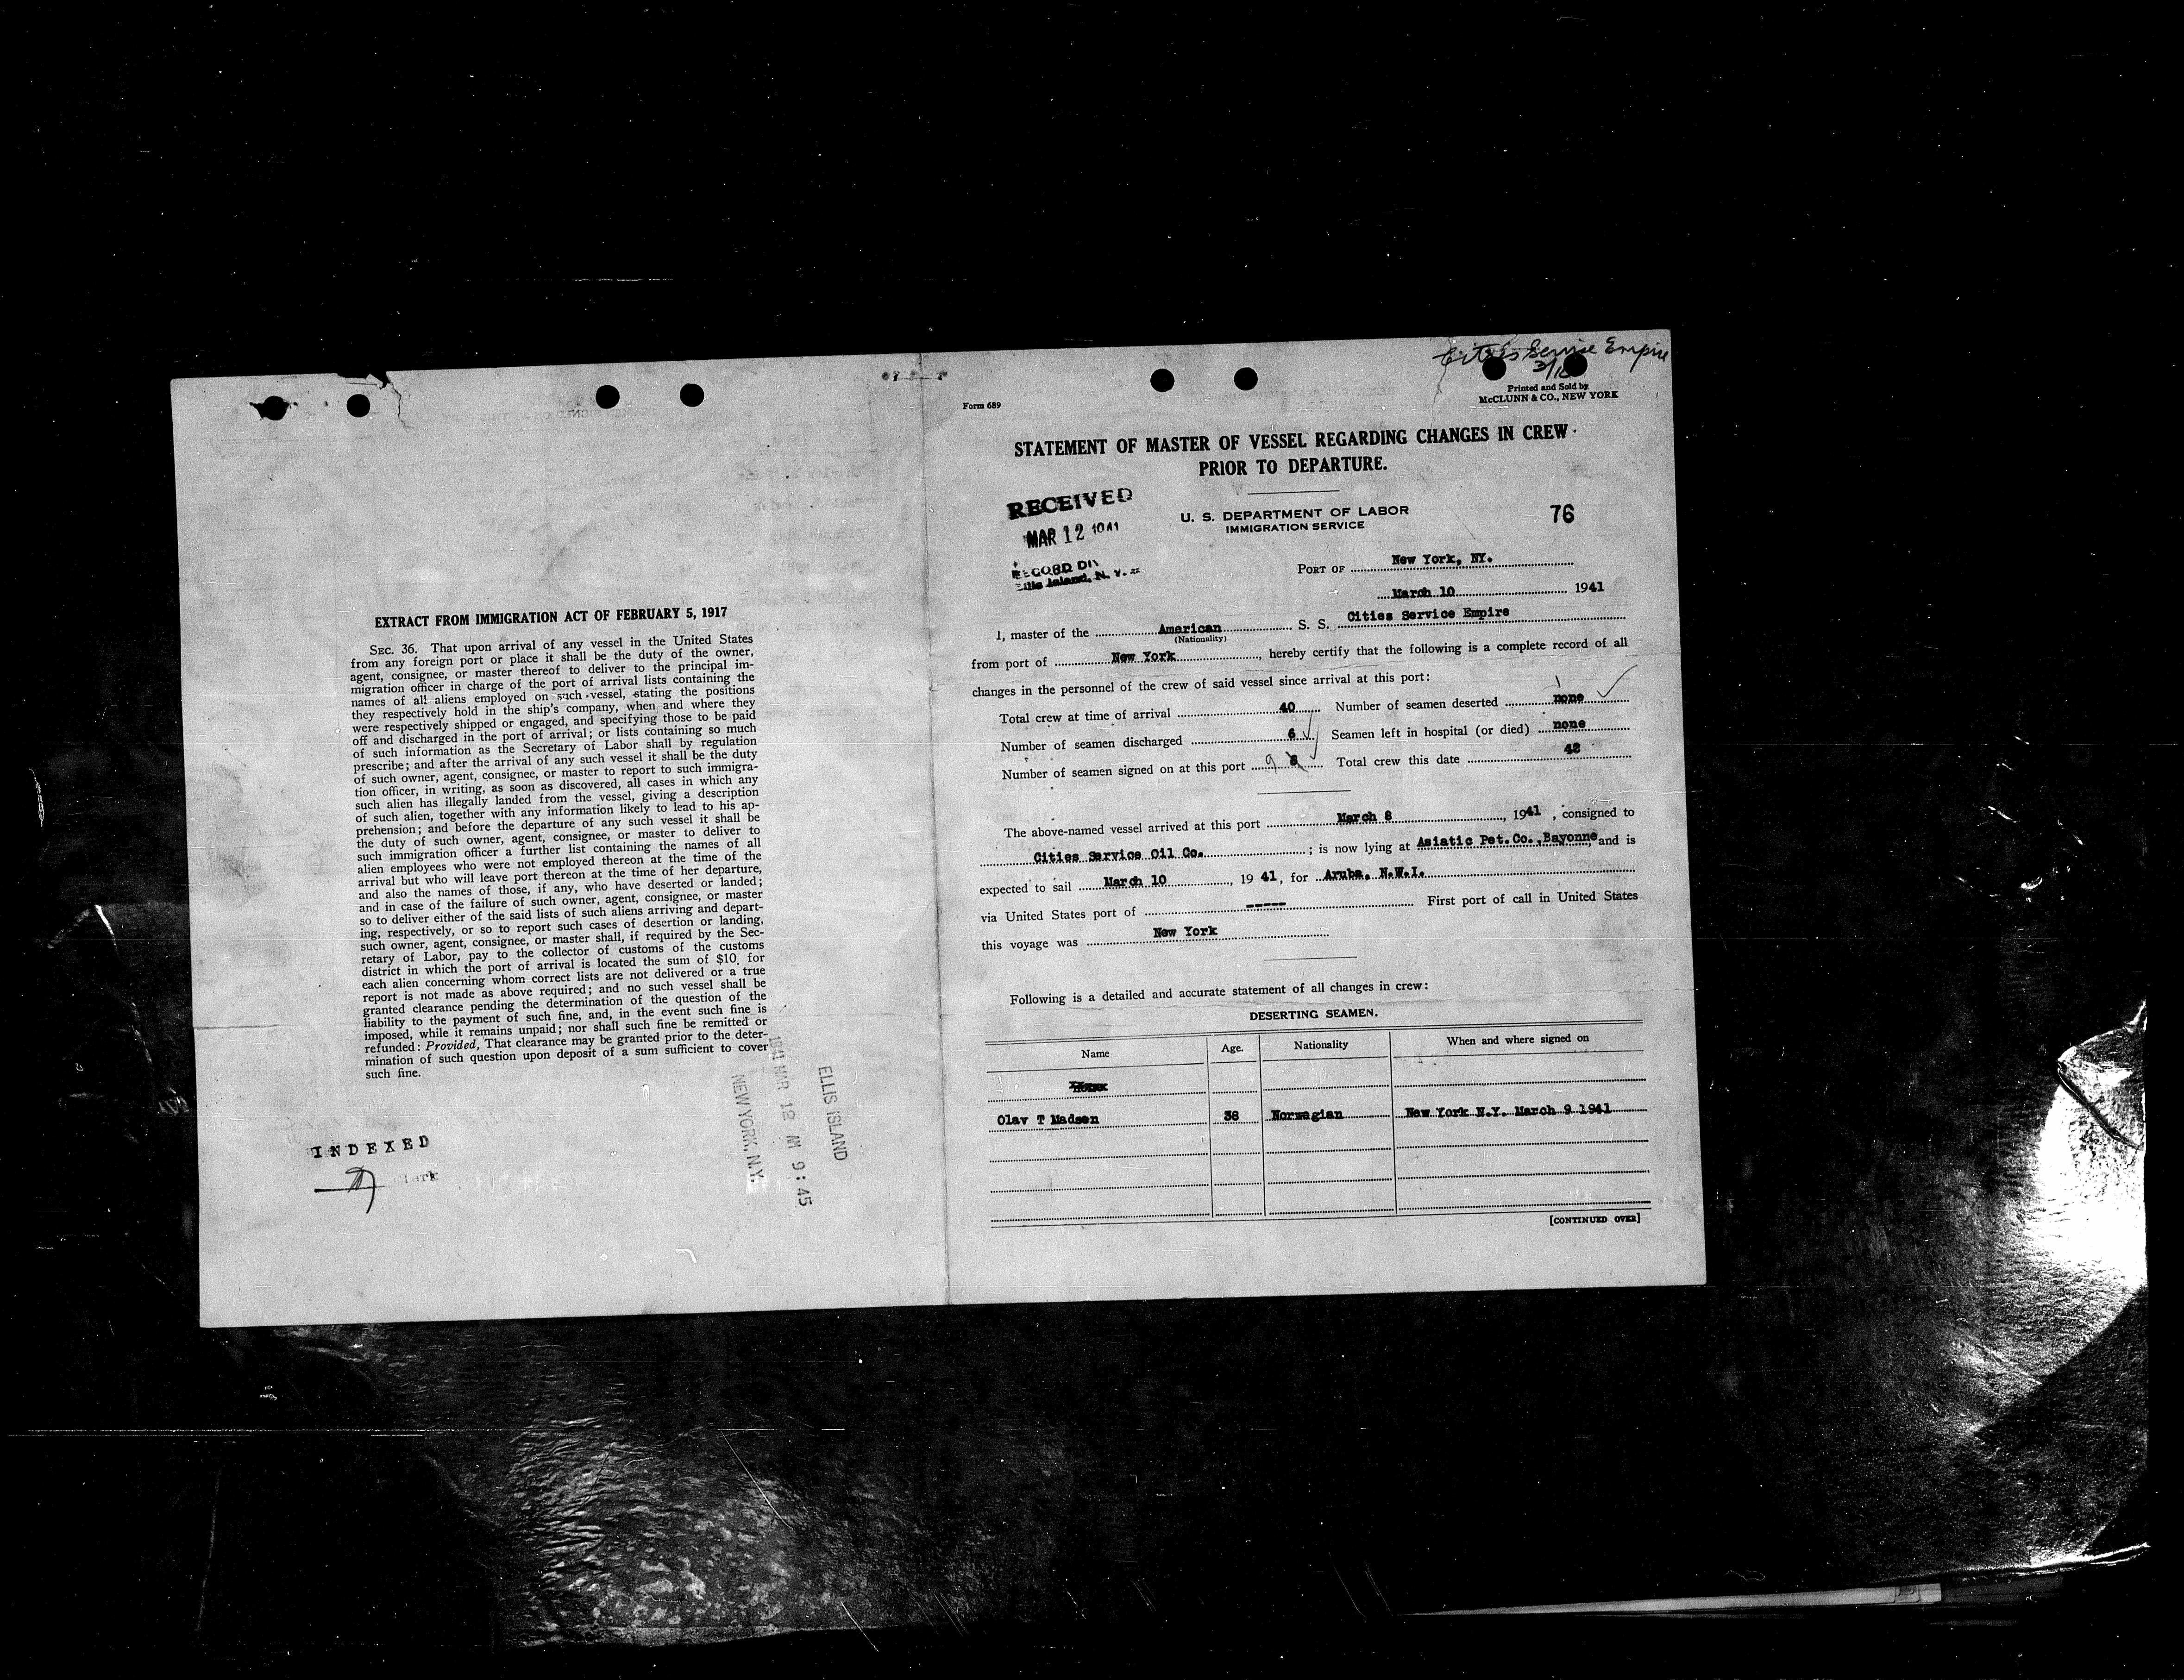 EXTRACT FROM IMMIGRATION ACT OF FEBRUARY 5, 1917
SEC. 36. That upon arrival of any vessel in the United States
from any foreign port or place it shall be the duty of the owner,
agent, consignee, or master thereof to deliver to the principal im-
migration officer in charge of the port of arrival lists containing the
names of all aliens employed on such vessel, stating the positions
they respectively hold in the ship's company, when and where they
were respectively shipped or engaged, and specifying those to be paid
off and discharged in the port of arrival; or lists containing so much
of such information as the Secretary of Labor shall by regulation
prescribe; and after the arrival of any such vessel it shall be the duty
of such owner, agent, consignee, or master to report to such immigra-
tion officer, in writing, as soon as discovered, all cases in which any
such alien has illegally landed from the vessel, giving a description
of such alien, together with any information likely to lead to his ap-
prehension; and before the departure of any such vessel it shall be
the duty of such owner, agent, consignee, or master to deliver to
such immigration officer a further list containing the names of all
alien employees who were not employed thereon at the time of the
arrival but who will leave port thereon at the time of her departure,
and also the names of those, if any, who have deserted or landed;
and in case of the failure of such owner, agent, consignee, or master
so to deliver either of the said lists of such aliens arriving and depart-
ing, respectively, or so to report such cases of desertion or landing,
such owner, agent, consignee, or master shall, if required by the Sec-
retary of Labor, pay to the collector of customs of the customs
district in which the port of arrival is located the sum of $10 for
each alien concerning whom correct lists are not delivered or a true
report is not made as above required; and no such vessel shall be
granted clearance pending the determination of the question of the
liability to the payment of such fine, and, in the event such fine is
imposed, while it remains unpaid; nor shall such fine be remitted or
refunded: Provided, That clearance may be granted prior to the deter-
mination of such question upon deposit of a sum sufficient to cover
such fine.
INDEXED
Clerk
ELLIS ISLAND
1941 MAR 12 AM 9:45
NEW YORK, N.Y.
Cities Service Empire
3/10
Form 689
Printed and Sold by
McCLUNN & CO., NEW YORK
STATEMENT OF MASTER OF VESSEL REGARDING CHANGES IN CREW
PRIOR TO DEPARTURE.
RECEIVED
MAR 12 1941
RECORD DIV
Ellis Island, N. Y.
U. S. DEPARTMENT OF LABOR
IMMIGRATION SERVICE
76
PORT OF New York, NY.
March 10 1941
I, master of the American S. S. Cities Service Empire
(Nationality)
from port of New York, hereby certify that the following is a complete record of all
changes in the personnel of the crew of said vessel since arrival at this port:
Total crew at time of arrival 40 Number of seamen deserted none
Number of seamen discharged 6 Seamen left in hospital (or died) none
Number of seamen signed on at this port 9 8 Total crew this date 42
The above-named vessel arrived at this port March 8, 1941, consigned to
Cities Service Oil Co.; is now lying at Asiatic Pet. Co., Bayonne, and is
expected to sail March 10, 1941, for Aruba, N.W.I.
via United States port of ----- First port of call in United States
this voyage was New York
Following is a detailed and accurate statement of all changes in crew:
DESERTING SEAMEN.
Name Age. Nationality When and where signed on
Olav T Madsen 38 Norwegian New York N.Y. March 9 1941
[CONTINUED OVER]